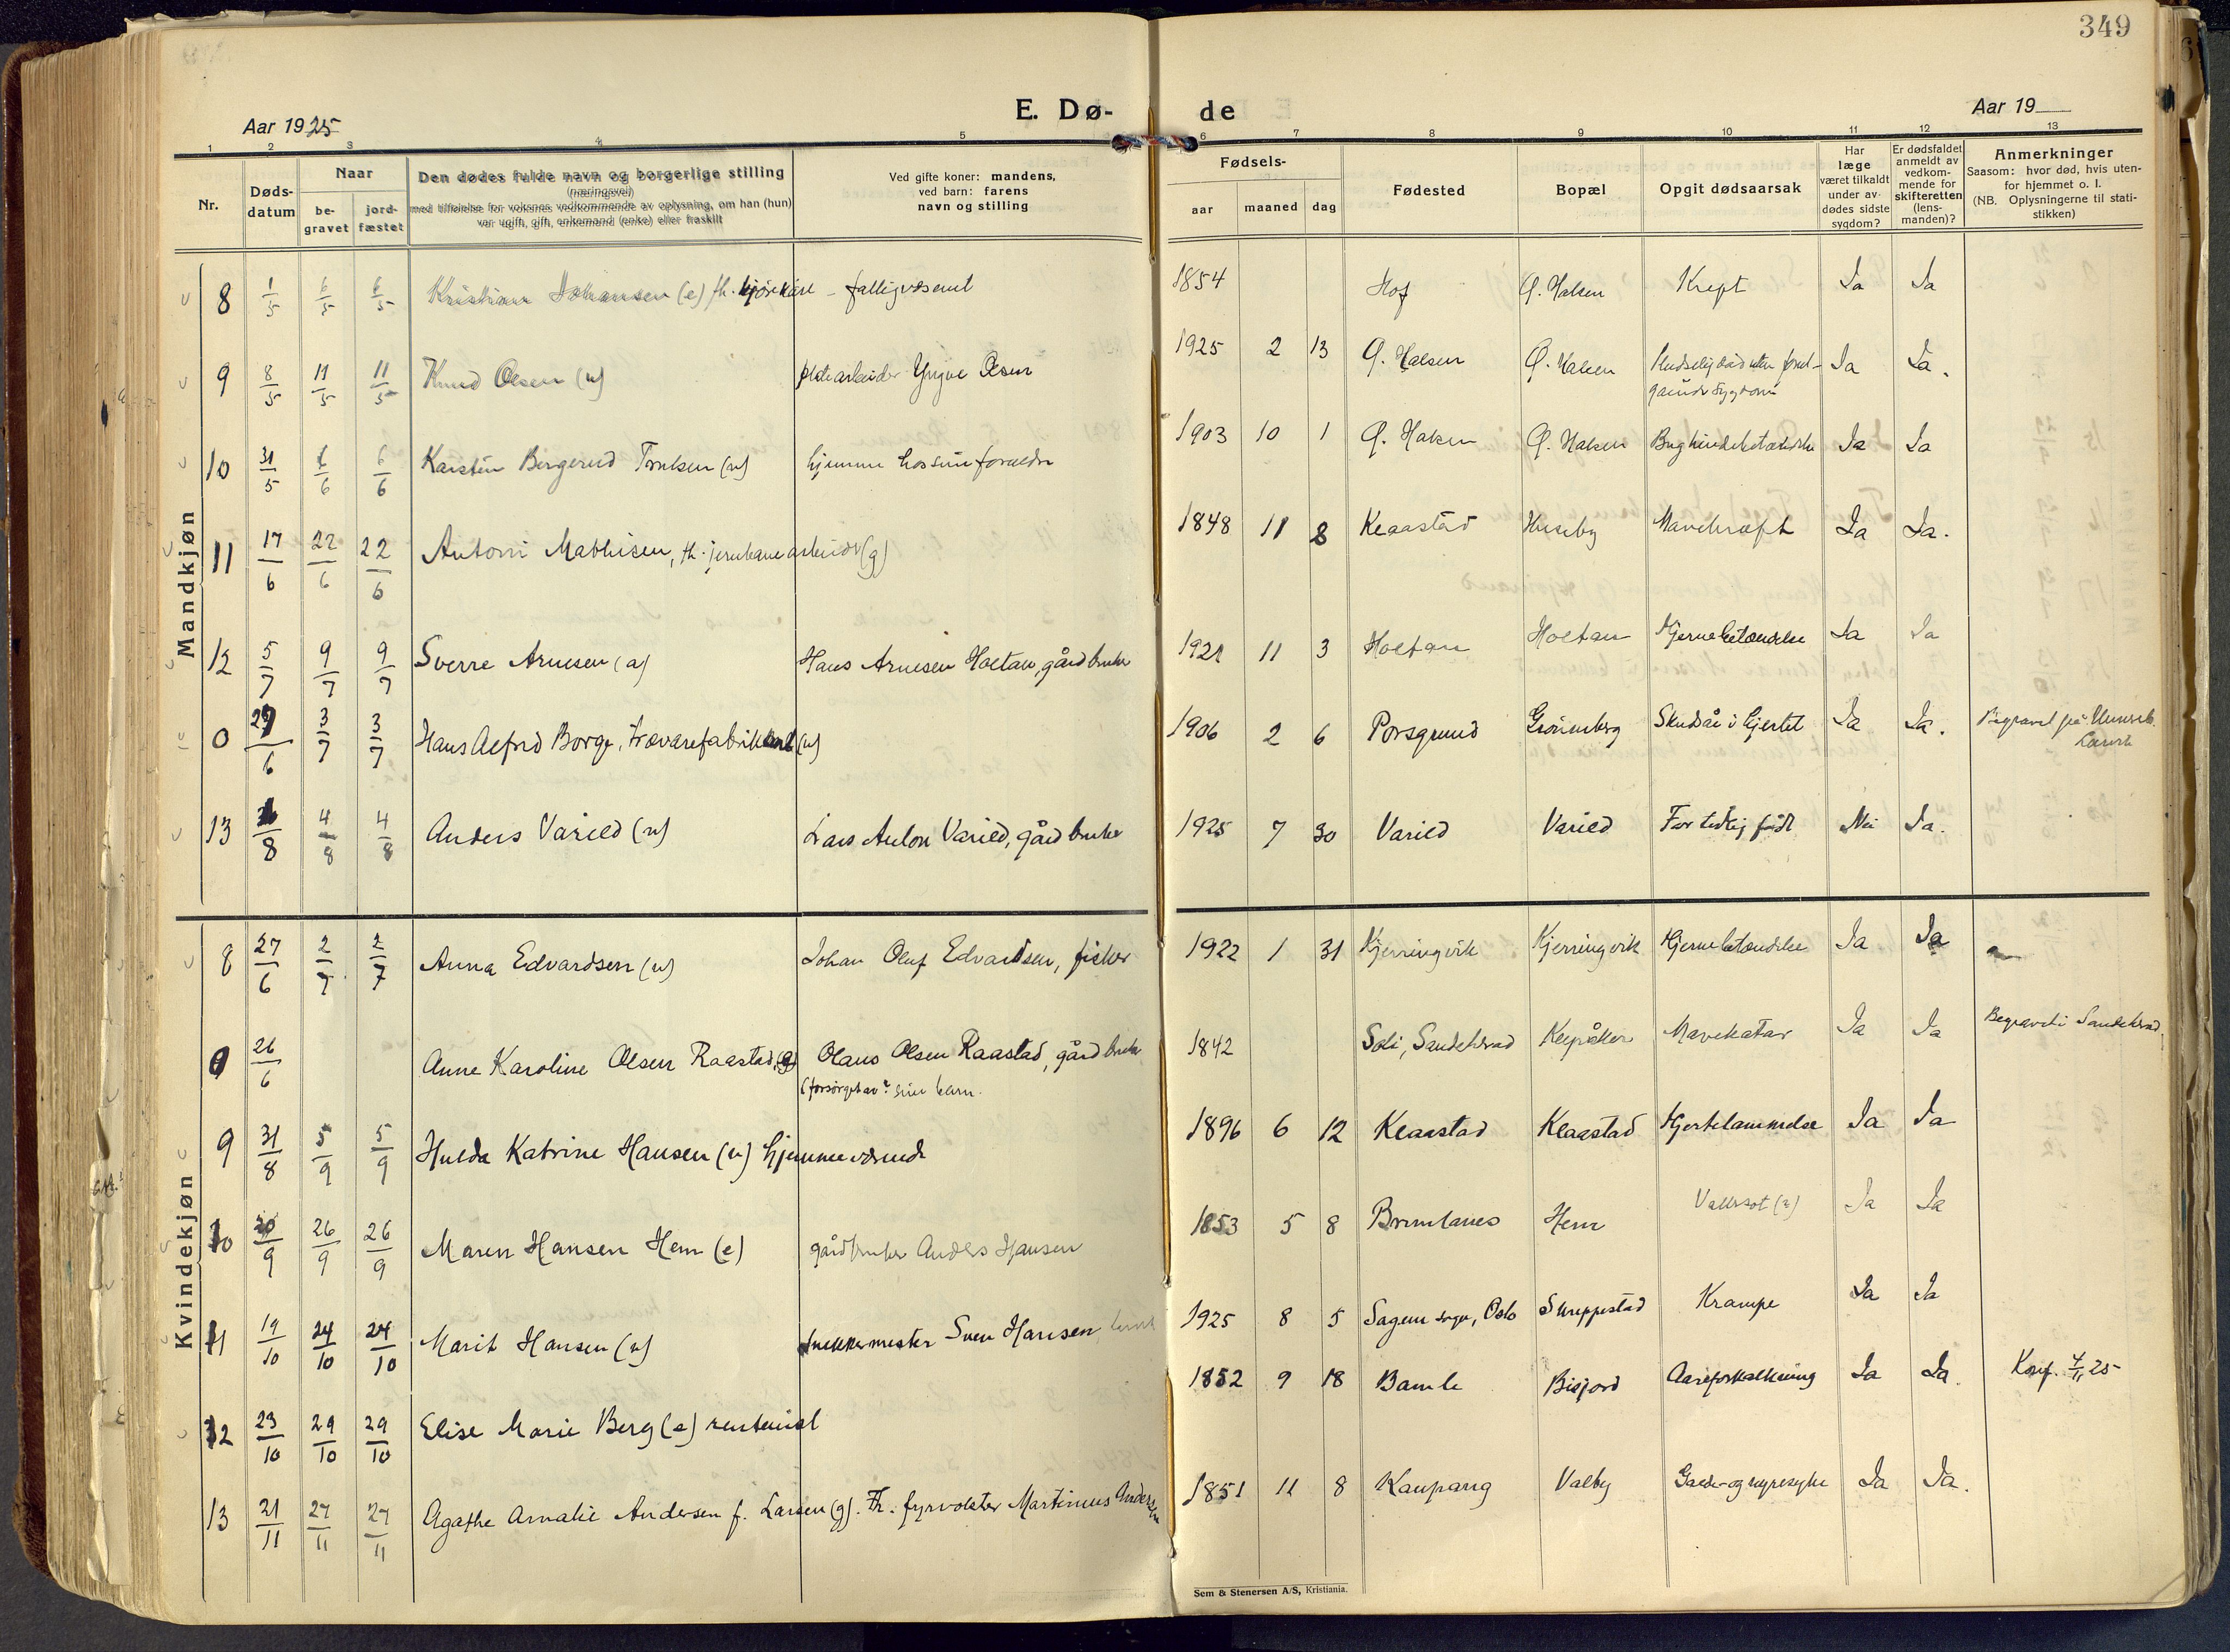 349
Aar 1925
E. Dø-
de
Aar 19
1 2 3 4 5 6 7 8 9 10 11 12 13
Nr.
Døds-
datum
Naar
be-
gravet
jord-
fæstet
Den dødes fulde navn og borgerlige stilling
(næringsvei)
med tilføielse for voksnes vedkommende av oplysning, om han (hun)
var ugift, gift, enkemand (enke) eller fraskilt
Ved gifte koner: mandens,
ved barn: farens
navn og stilling
Fødsels-
aar
maaned
dag
Fødested
Bopæl
Opgit dødsaarsak
Har
læge
været tilkaldt
under av-
dødes sidste
sygdom?
Er dødsfaldet
anmeldt av
vedkom-
mende for
skifteretten
(lens-
manden)?
Anmerkninger
Saasom: hvor død, hvis uten-
for hjemmet o. l.
(NB. Oplysningerne til stati-
stikken)
Mandkjøn
8 1/5 6/5 6/5 Kristian Johansen (e) fh. kjørekarl - fattigvesenet 1854 Hof Ø. Halsen Kreft Ja Ja
9 8/5 11/5 11/5 Knud Olsen (u) Yngve Olsen 1925 2 13 Ø. Halsen Ø. Halsen Pludselig død uten fored-
gaaende sygdom Ja Ja.
10 31/5 6/6 6/6 Karsten Bergerud Trulsen (u) hjemme hos sine foreldre 1903 10 1 Ø. Halsen Ø. Halsen Bughindebetændelse Ja Ja
11 17/6 22/6 22/6 Antoni Mathisen, fh. jernbanearbeider (g) 1848 11 8 Klaastad Huseby Mavekræft Ja Ja.
12 5/7 9/7 9/7 Sverre Arnesen (u) Hans Arnesen Holtan, gårdbruker 1921 11 3 Holtan Holtan Hjernebetændelse Ja Ja
0 27/6 3/7 3/7 Hans Alfred Borge, trævarefabrikant (u) 1906 2 6 Porsgrund Grønneberg Skudsår i hjertet Ja Ja. Begravet på
Larvik
13 8 4/8 4/8 Anders Varild (u) Lars Anton Varild, gårdbruker 1925 7 30 Varild Varild For tidlig født Nei Ja.
Kvindekjøn
8 27/6 2/7 2/7 Anna Edvardsen (u) Johan Oluf Edvardsen, fisker 1922 1 31 Kjerringvik Kjerringvik Hjernebetændelse Ja Ja
0 26/6 Anne Karoline Olsen Raastad, (g) Olaus Olsen Raastad, gårdbruker 1842 Soli, Sandeherad Klepåker Mavekatar Ja Ja Begravet i Sandeherad.
(forsørget av sine barn.
9 31/8 5/9 5/9 Hulda Katrine Hansen (u) hjemmeværende 1896 6 12 Klaastad Klaastad Hjertelammelse Ja Ja
10 20/9 26/9 26/9 Maren Hansen Hem (e) gårdbruker Anders Hansen 1853 5 8 Brunlanes Hem Vattersot (?) Ja Ja
11 19/10 24/10 24/10 Marit Hansen (u) snekkermester Sven Hansen, 1925 8 5 Sagene sogn, Oslo Skreppestad Krampe Ja Ja
12 23/10 29/10 29/10 Elise Marie Berg (e) rentenist 1852 9 18 Bamle Bisjord Aareforkalkning Ja Ja. Konf. 4/11 25
13 21/11 27/11 27/11 Agathe Amalie Andersen f. Larsen (g). Fh. fyrvokter Martinius Andersen 1851 11 8 Kaupang Valby Galde- og nyresyke Ja Ja.
Sem & Stenersen A/S, Kristiania.